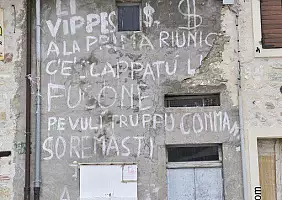 LI
VIPPES $. $
A LA PRIMA RIUNIC
C'E' CAPPATU LI
FUSONE
PE VULI TRUPPU COMMAN
SO REMASTI
A
.com